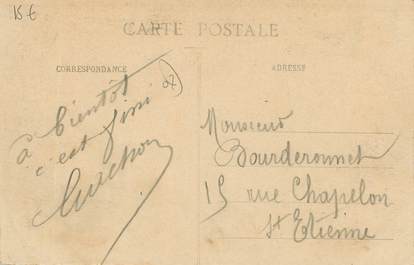 15 €
CARTE POSTALE
CORRESPONDANCE
ADRESSE
à bientôt
c'est fini
Monsieur
Bourderonnet
15 rue Chapelon
St Etienne